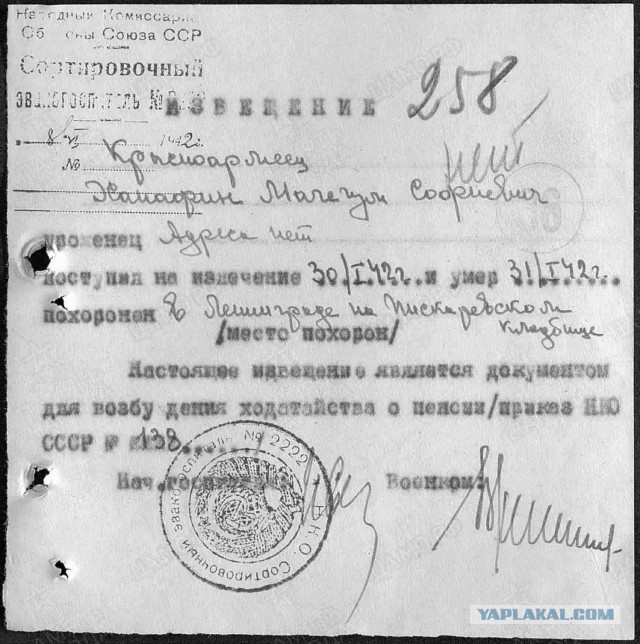 Народный Комиссариат
Обороны Союза ССР
Сортировочный
эвакогоспиталь №
ИЗВЕЩЕНИЕ 258
8/VI 1942г.
№
нет
Красноармеец
Софиевич
уроженец Адреса нет
поступил на излечение 30/I.42г. и умер 31/I.42г.
похоронен в Ленинграде на Пискаревском
кладбище
/место похорон/
Настоящее извещение является документом
для возбуждения ходатайства о пенсии/приказ НКО
СССР № 138
Нач.госпиталя Военком
Сортировочный эвакогоспиталь № 2222 Н.К.О.
YAPLAKAL.COM